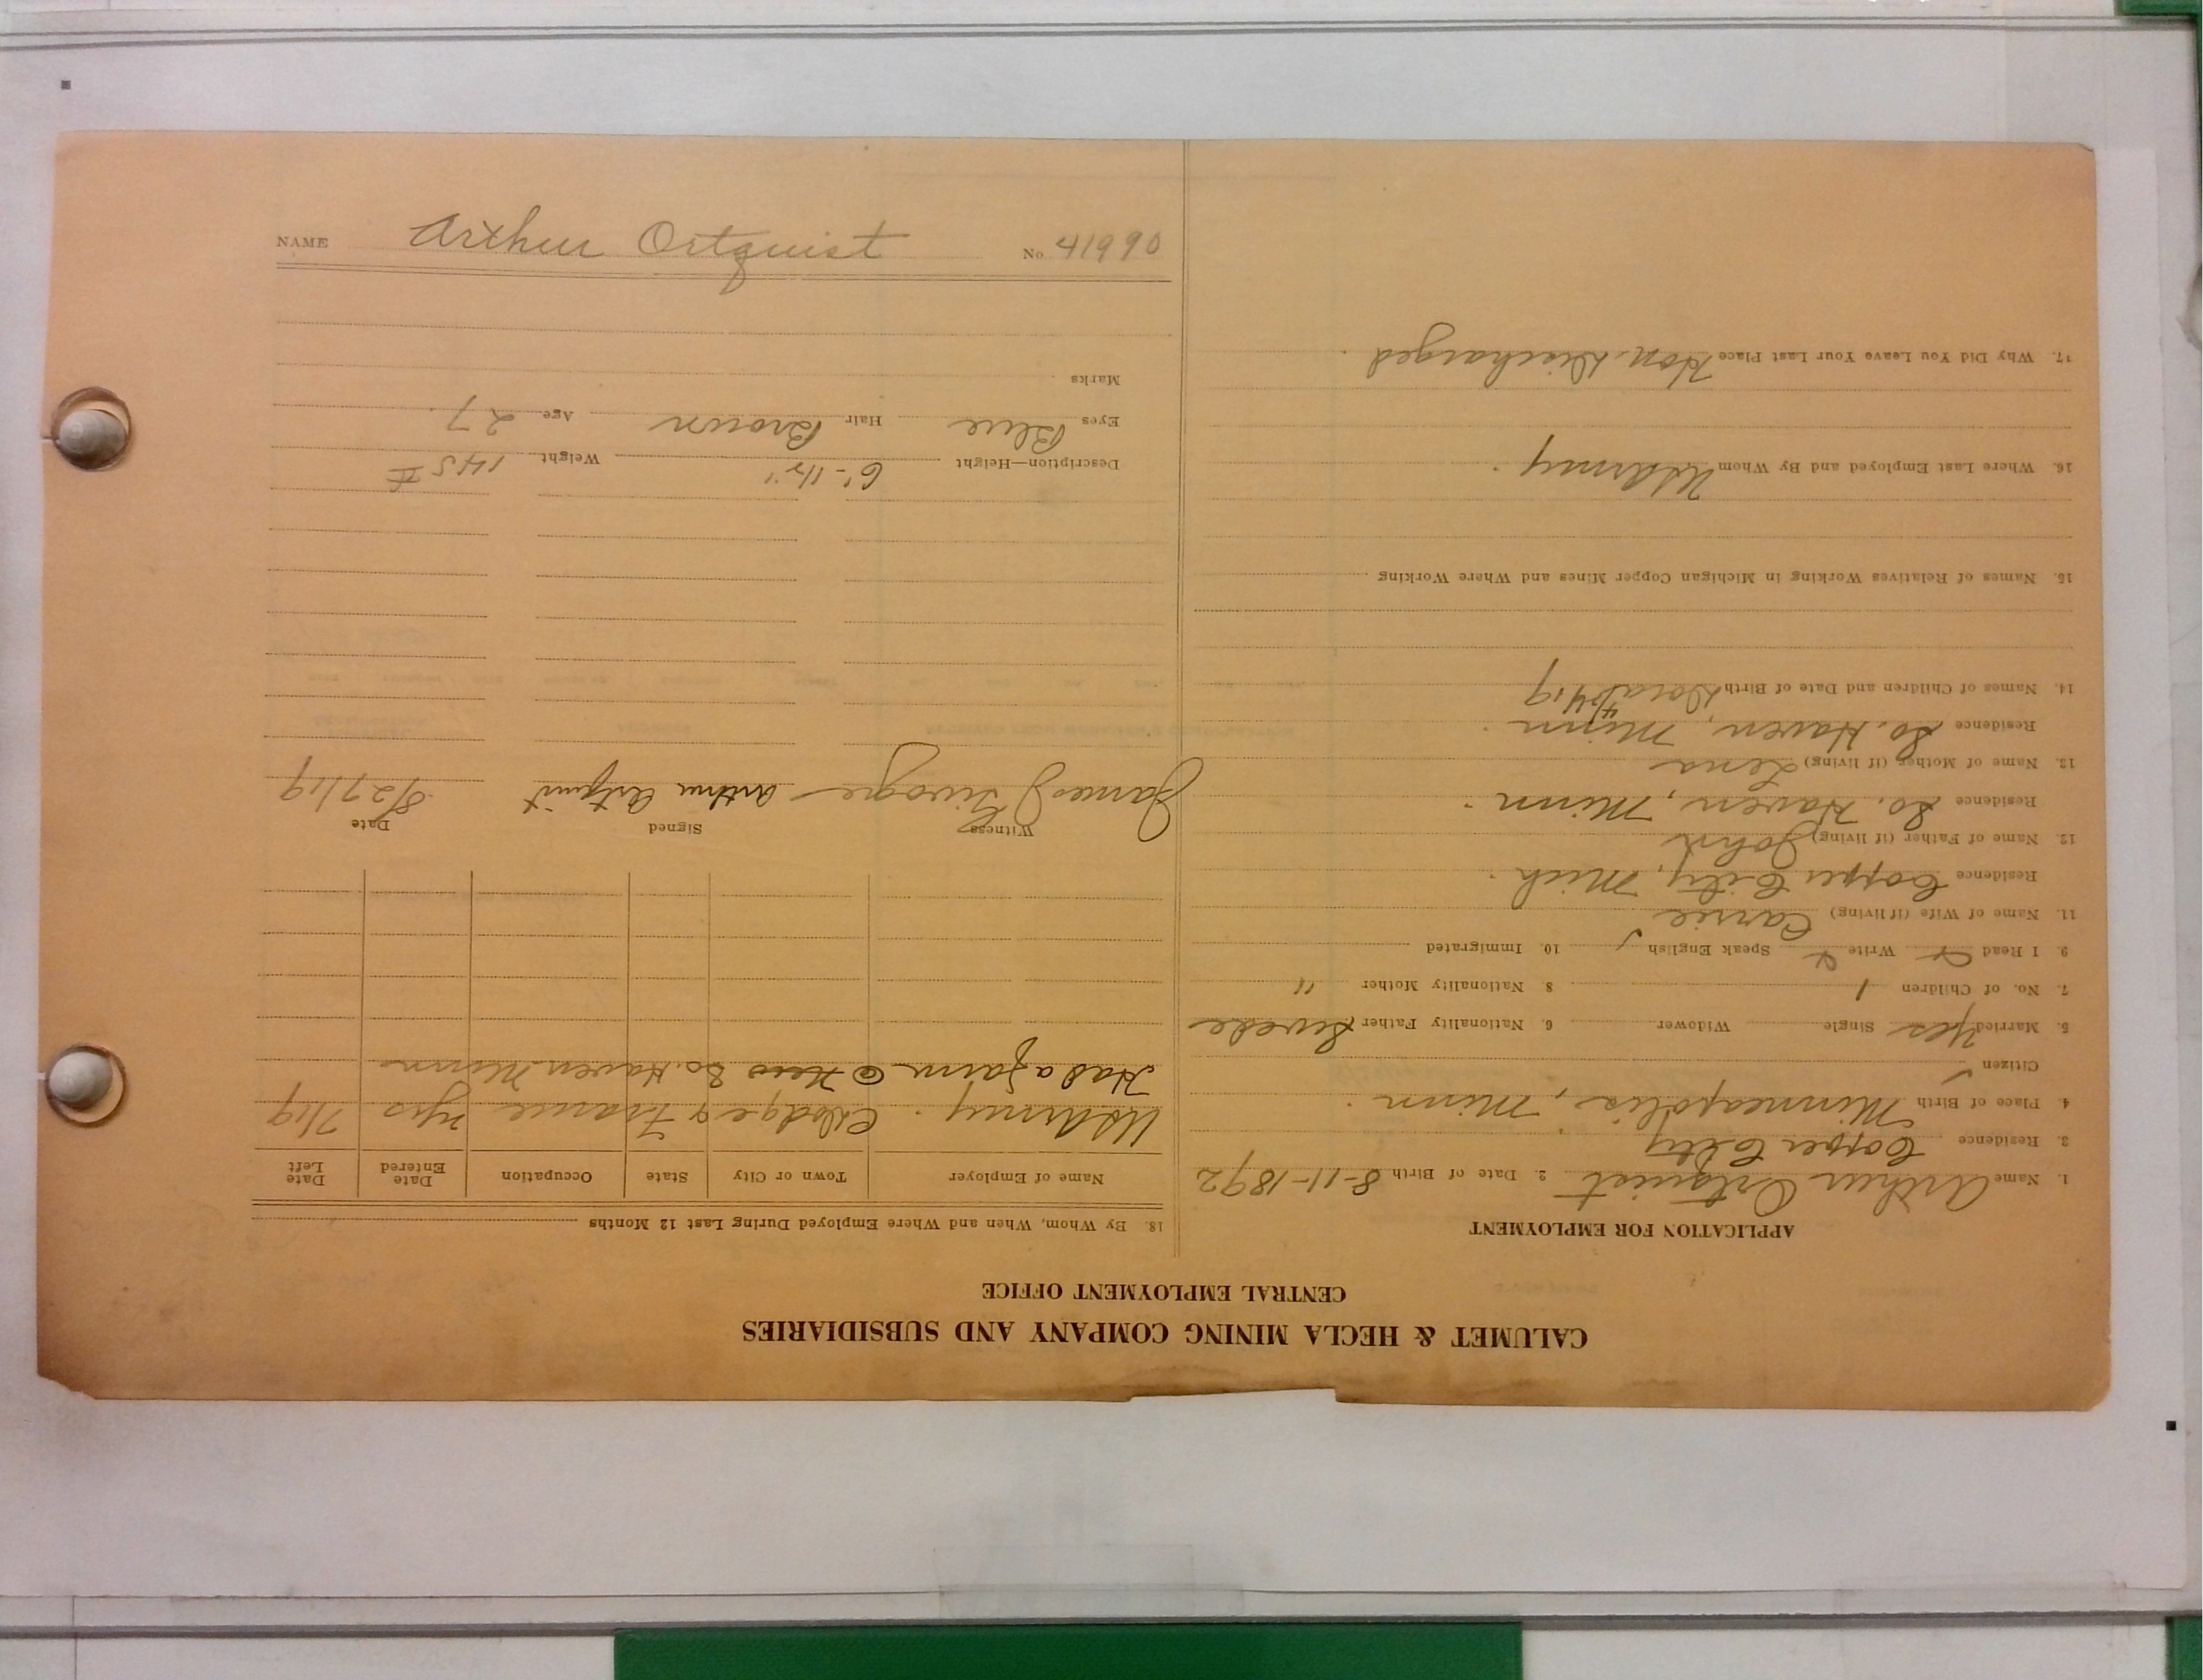 CALUMET & HECLA MINING COMPANY AND SUBSIDIARIES
CENTRAL EMPLOYMENT OFFICE
APPLICATION FOR EMPLOYMENT
1. Name Arthur Ortquist 2. Date of Birth 8-11-1892
3. Residence Copper City
4. Place of Birth Minneapolis, Minn.
Citizen ✓
5. Married Yes Single Widower 6. Nationality Father Swede
7. No. of Children 1 8. Nationality Mother "
9. I Read Write Speak English ✓ 10. Immigrated
11. Name of Wife (if living) Carrie
Residence Copper City, Mich.
12. Name of Father (if living) John
Residence So. Haven, Minn.
13. Name of Mother (if living) Lena
Residence So. Haven, Minn.
14. Names of Children and Date of Birth 4/24/19
15. Names of Relatives Working in Michigan Copper Mines and Where Working
16. Where Last Employed and By Whom US Army.
17. Why Did You Leave Your Last Place Hon. Discharged.
18. By Whom, When and Where Employed During Last 12 Months
Name of Employer Town or City State Occupation Date Entered Date Left
US Army. & France 7/19
Had a farm @ So. Haven Minn
Witness Signed Date
James Arthur Ortquist 8/27/19
Description—Height 6'-1½" Weight 145 #
Eyes Blue Hair Brown Age 27.
Marks
NAME Arthur Ortquist No. 41990